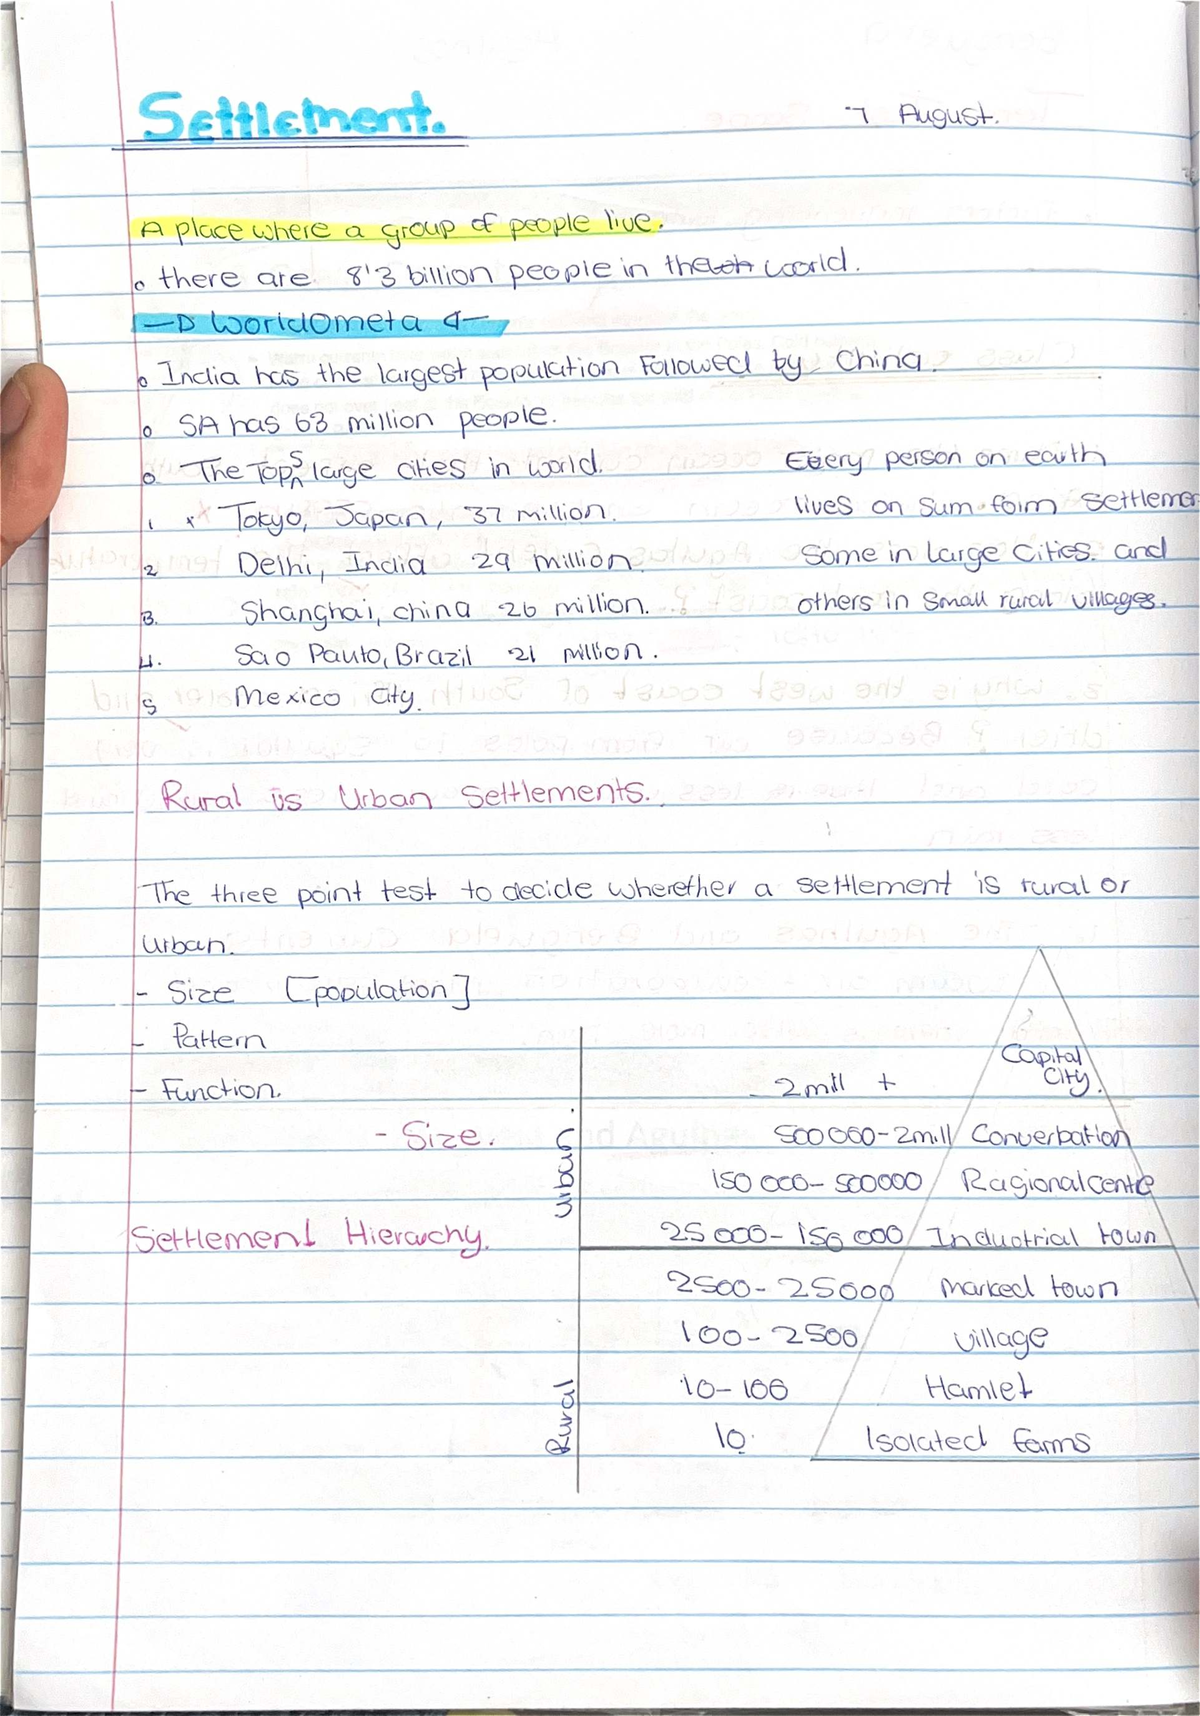 Settlement.
7 August.
A place where a group of people live.
o there are 8'3 billion people in the world.
→ Worldometa ←
o India has the largest population followed by China.
o SA has 63 million people.
o The Top 5 large cities in world.
1 x Tokyo, Japan, 37 million.
2 Delhi, India 29 million.
3. Shanghai, china 26 million.
4. Sao Pauto, Brazil 21 million.
5 Mexico City.
Every person on earth
lives on sum form settlemen
some in large cities. and
others in small rural villages.
Rural vs Urban Settlements.
The three point test to decide wherether a settlement is rural or
urban.
- Size [population]
- Pattern
- Function.
- Size.
Settlement Hierachy.
Urban.
Rural
2mill + Capital City.
500 000-2mill Conuerbation
150 000-500000 Ragional centre
25 000-150 000 Industrial town
2500-25000 marked town
100-2500 village
10-100 Hamlet
10. Isolated farms